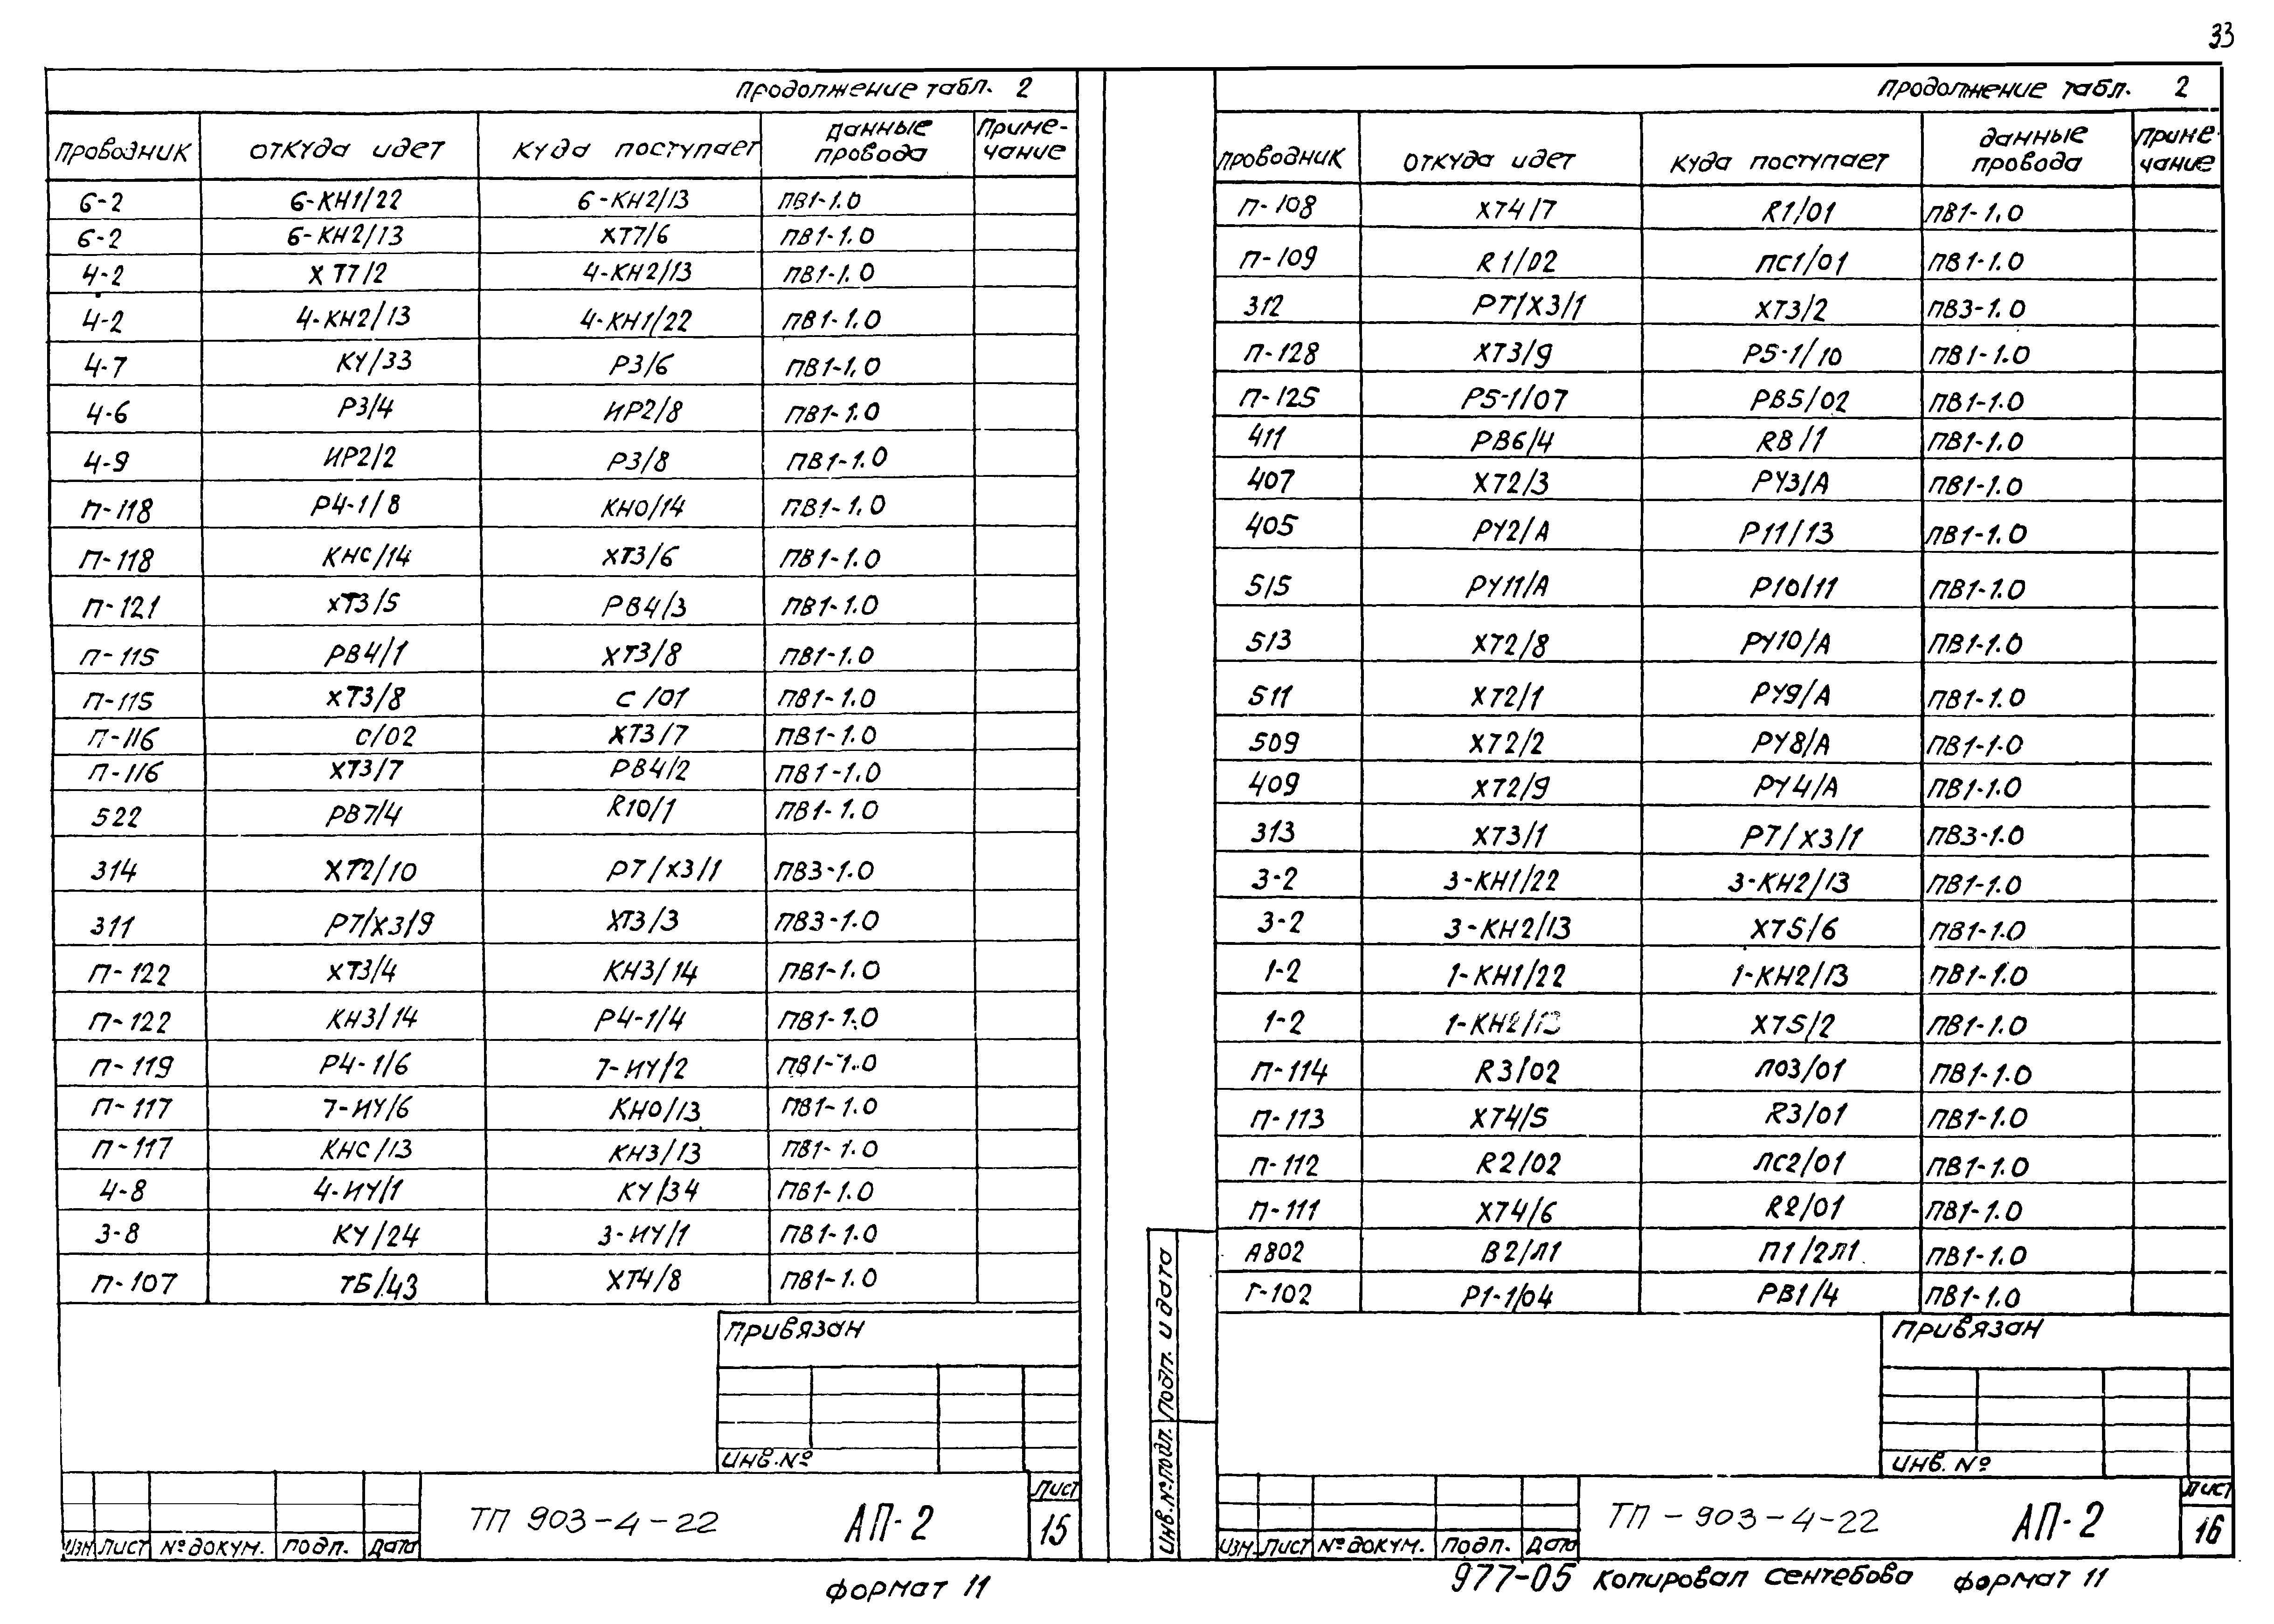 33
Продолжение табл. 2
Проводник | Откуда идет | Куда поступает | Данные провода | Приме-чание
6-2 | 6-КН1/22 | 6-КН2/13 | ПВ1-1.0
6-2 | 6-КН2/13 | ХТ7/6 | ПВ1-1.0
4-2 | ХТ7/2 | 4-КН2/13 | ПВ1-1.0
4-2 | 4-КН2/13 | 4-КН1/22 | ПВ1-1.0
4-7 | КУ/33 | Р3/6 | ПВ1-1.0
4-6 | Р3/4 | ИР2/8 | ПВ1-1.0
4-9 | ИР2/2 | Р3/8 | ПВ1-1.0
П-118 | Р4-1/8 | КН0/14 | ПВ1-1.0
П-118 | КНС/14 | ХТ3/6 | ПВ1-1.0
П-121 | ХТ3/5 | РВ4/3 | ПВ1-1.0
П-115 | РВ4/1 | ХТ3/8 | ПВ1-1.0
П-115 | ХТ3/8 | С/01 | ПВ1-1.0
П-116 | С/02 | ХТ3/7 | ПВ1-1.0
П-116 | ХТ3/7 | РВ4/2 | ПВ1-1.0
522 | РВ7/4 | R10/1 | ПВ1-1.0
314 | ХТ2/10 | Р7/Х3/1 | ПВ3-1.0
311 | Р7/Х3/9 | ХТ3/3 | ПВ3-1.0
П-122 | ХТ3/4 | КН3/14 | ПВ1-1.0
П-122 | КН3/14 | Р4-1/4 | ПВ1-1.0
П-119 | Р4-1/6 | 7-ИУ/2 | ПВ1-1.0
П-117 | 7-ИУ/6 | КН0/13 | ПВ1-1.0
П-117 | КНС/13 | КН3/13 | ПВ1-1.0
4-8 | 4-ИУ/1 | КУ/34 | ПВ1-1.0
3-8 | КУ/24 | 3-ИУ/1 | ПВ1-1.0
П-107 | ТБ/43 | ХТ4/8 | ПВ1-1.0
Привязан
Инв.№
Изм Лист № докум. Подп. Дата
ТП 903-4-22 АП-2
Лист
15
формат 11
Продолжение табл. 2
Проводник | Откуда идет | Куда поступает | Данные провода | Приме-чание
П-108 | ХТ4/7 | R1/01 | ПВ1-1.0
П-109 | R1/02 | ПС1/01 | ПВ1-1.0
312 | Р7/Х3/1 | ХТ3/2 | ПВ3-1.0
П-128 | ХТ3/9 | Р5-1/10 | ПВ1-1.0
П-125 | Р5-1/07 | РВ5/02 | ПВ1-1.0
411 | РВ6/4 | R8/1 | ПВ1-1.0
407 | ХТ2/3 | РУ3/А | ПВ1-1.0
405 | РУ2/А | Р11/13 | ПВ1-1.0
515 | РУ11/А | Р10/11 | ПВ1-1.0
513 | ХТ2/8 | РУ10/А | ПВ1-1.0
511 | ХТ2/1 | РУ9/А | ПВ1-1.0
509 | ХТ2/2 | РУ8/А | ПВ1-1.0
409 | ХТ2/9 | РУ4/А | ПВ1-1.0
313 | ХТ3/1 | Р7/Х3/1 | ПВ3-1.0
3-2 | 3-КН1/22 | 3-КН2/13 | ПВ1-1.0
3-2 | 3-КН2/13 | ХТ5/6 | ПВ1-1.0
1-2 | 1-КН1/22 | 1-КН2/13 | ПВ1-1.0
1-2 | 1-КН2/13 | ХТ5/2 | ПВ1-1.0
П-114 | R3/02 | Л03/01 | ПВ1-1.0
П-113 | ХТ4/5 | R3/01 | ПВ1-1.0
П-112 | R2/02 | ЛС2/01 | ПВ1-1.0
П-111 | ХТ4/6 | R2/01 | ПВ1-1.0
А802 | В2/Л1 | П1/2Л1 | ПВ1-1.0
Г-102 | Р1-1/04 | РВ1/4 | ПВ1-1.0
Привязан
Инв. №
Инв. № подл. Подп. и дата
Изм Лист № докум. Подп. Дата
ТП-903-4-22 АП-2
Лист
16
977-05 Копировал Сентебова формат 11